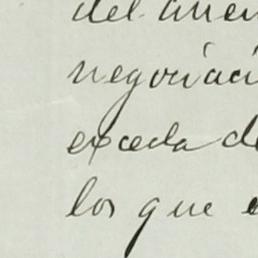 del
negociaci
exceda de
los que